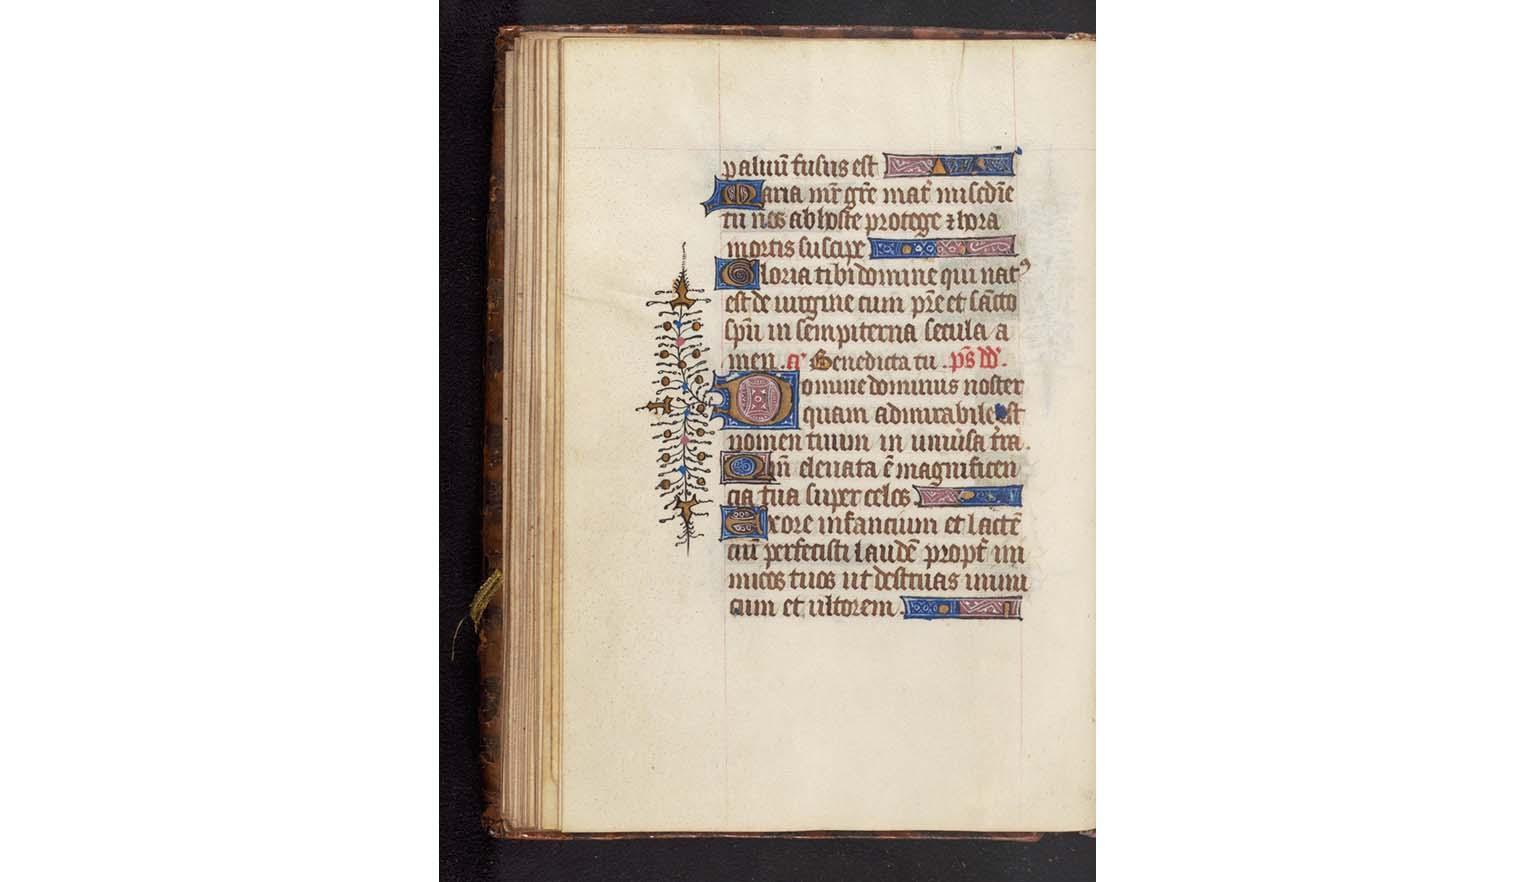 paluū fusus est
Maria mr̄ grē mat̄ misc̄die
tu nos ab hoste protege ⁊ hora
mortis suscipe
Gloria tibi domine qui nat⁹
est de uirgine cum pr̄e et sācto
sp̄u in sempiterna secula a
men. a᷑ Benedicta tu . p̄s dd᷑.
Domine dominus noster
quam admirabile est
nomen tuum in uniu̅sa tr̄a.
Qm̄ eleuata ē magnificen
cia tua super celos
Ex ore infancium et lactē
ciū perfecisti laudē propt̄ ini
micos tuos ut destruas inimi
cum et ultorem.